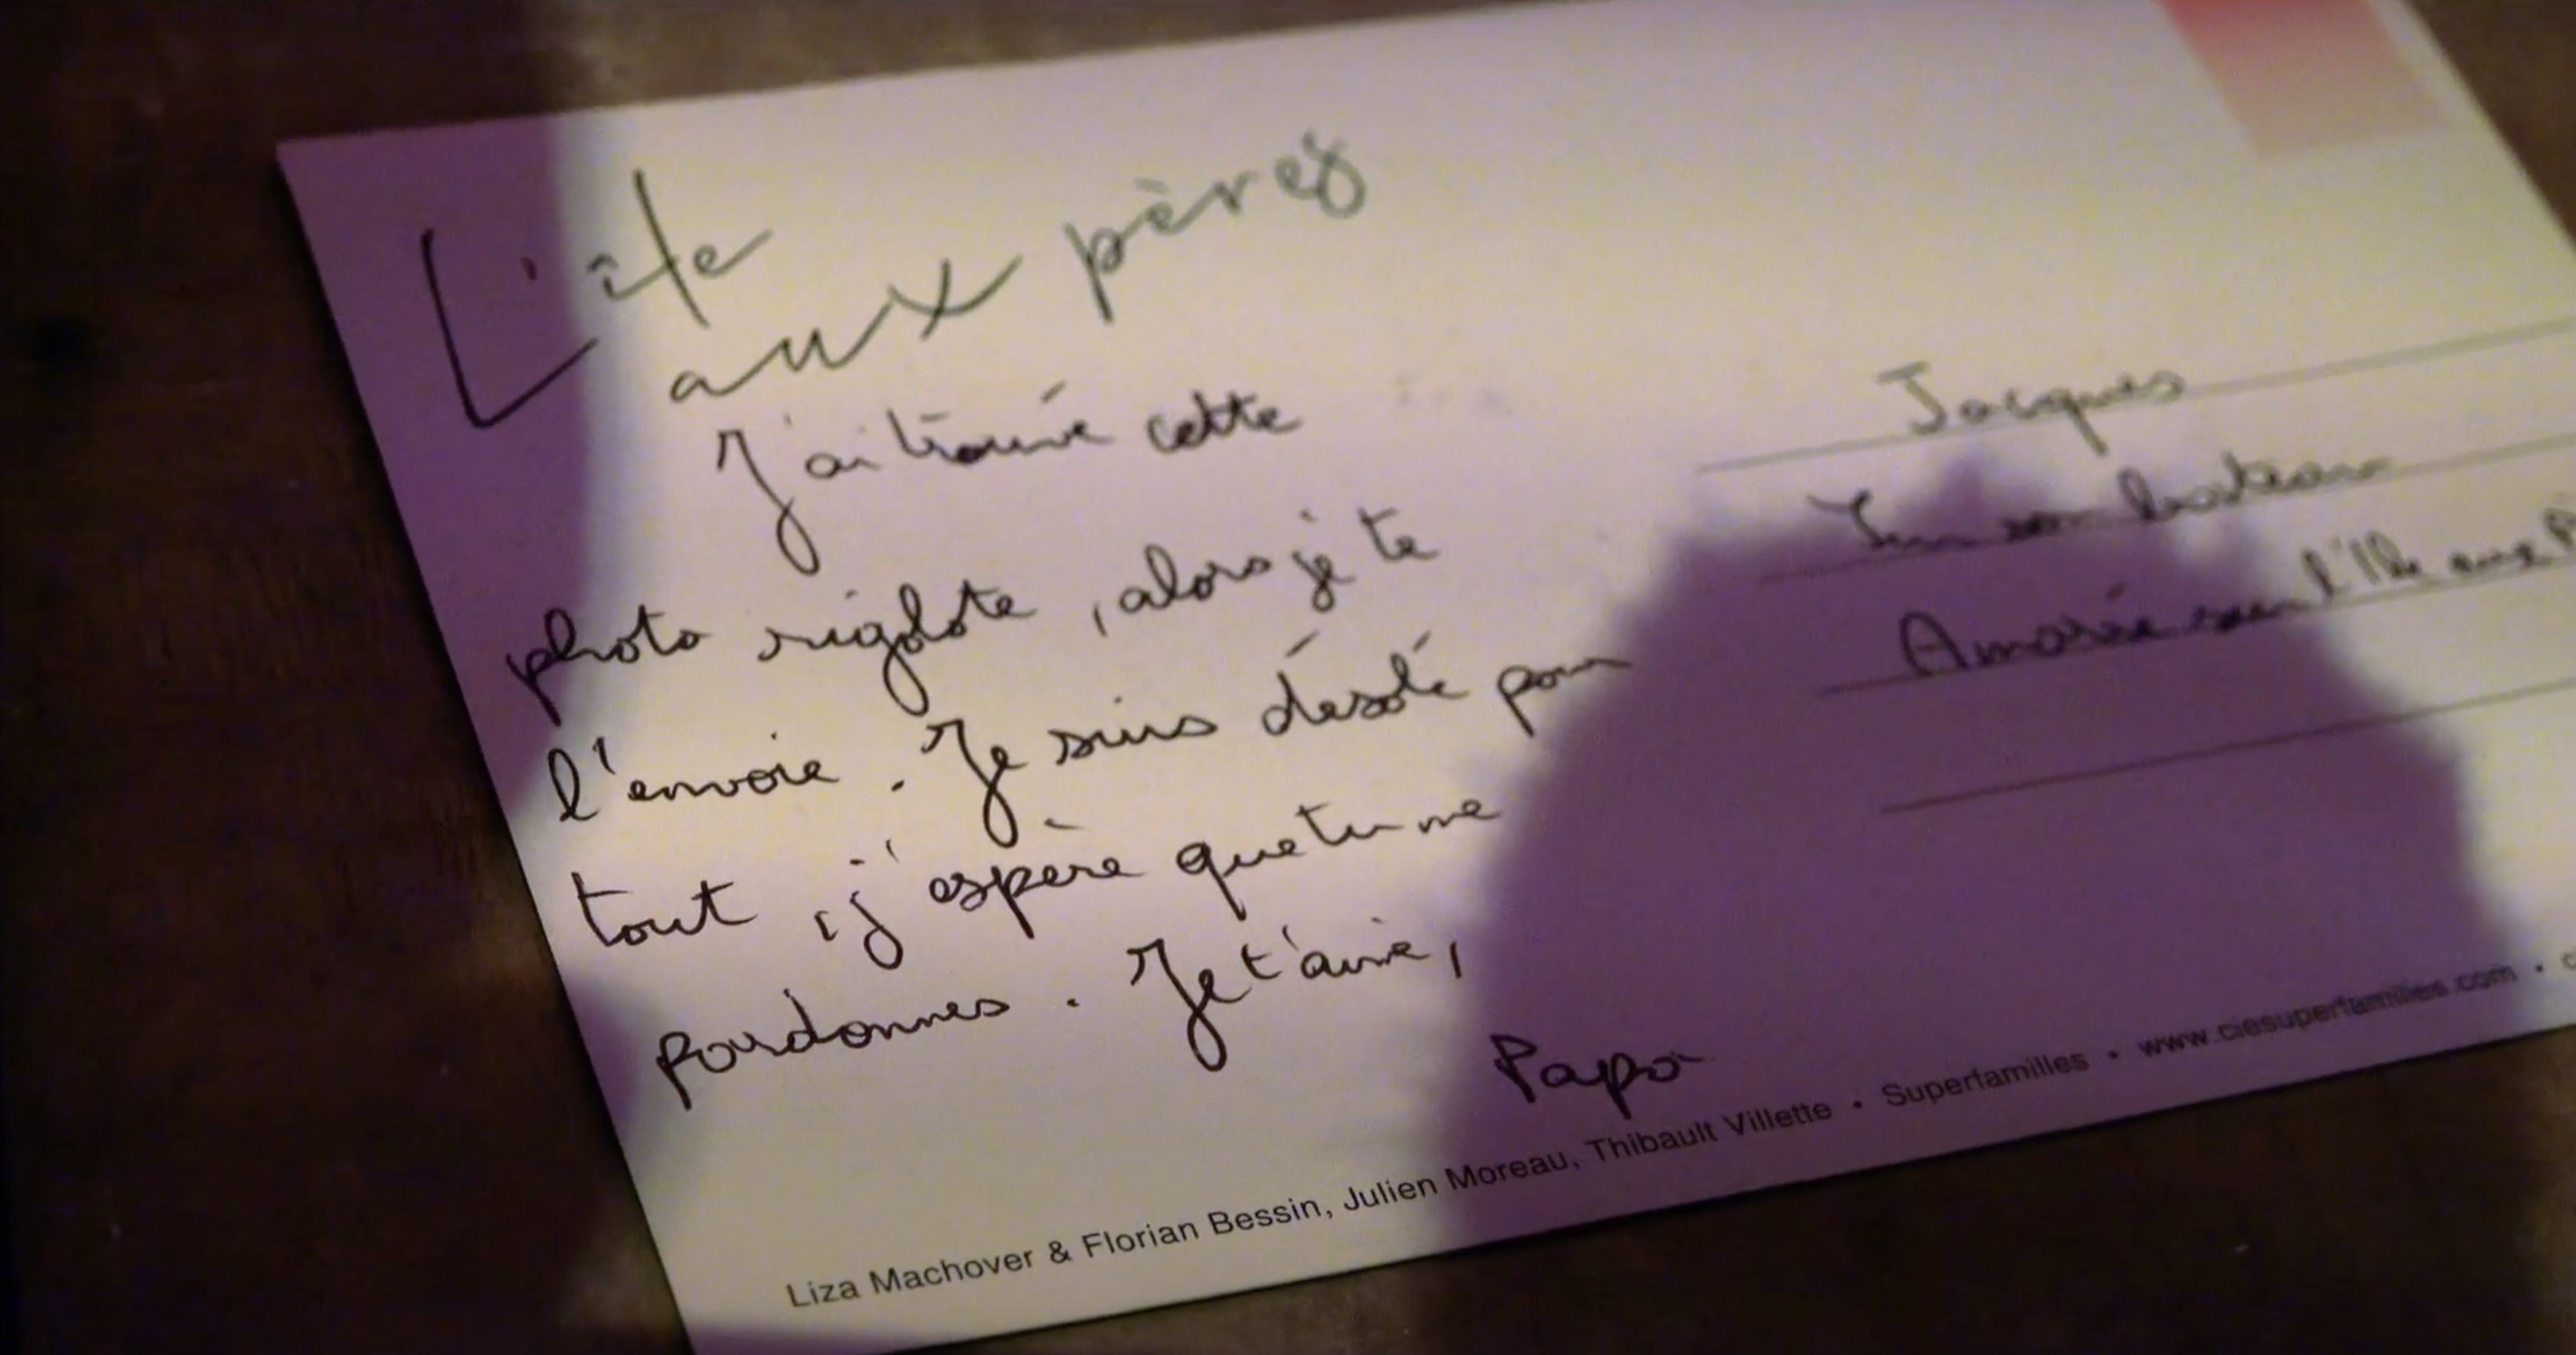 L'île
aux pères
J'ai trouvé cette
photo rigolote, alors je te
l'envoie. Je suis désolé pour
tout, j'espère que tu me
pardonnes. Je t'aime,
Papa
Jacques
Sur son bateau
Amarré sur l'Ile aux
Liza Machover & Florian Bessin, Julien Moreau, Thibault Villette • Superfamilles • www.ciesuperfamilles.com •